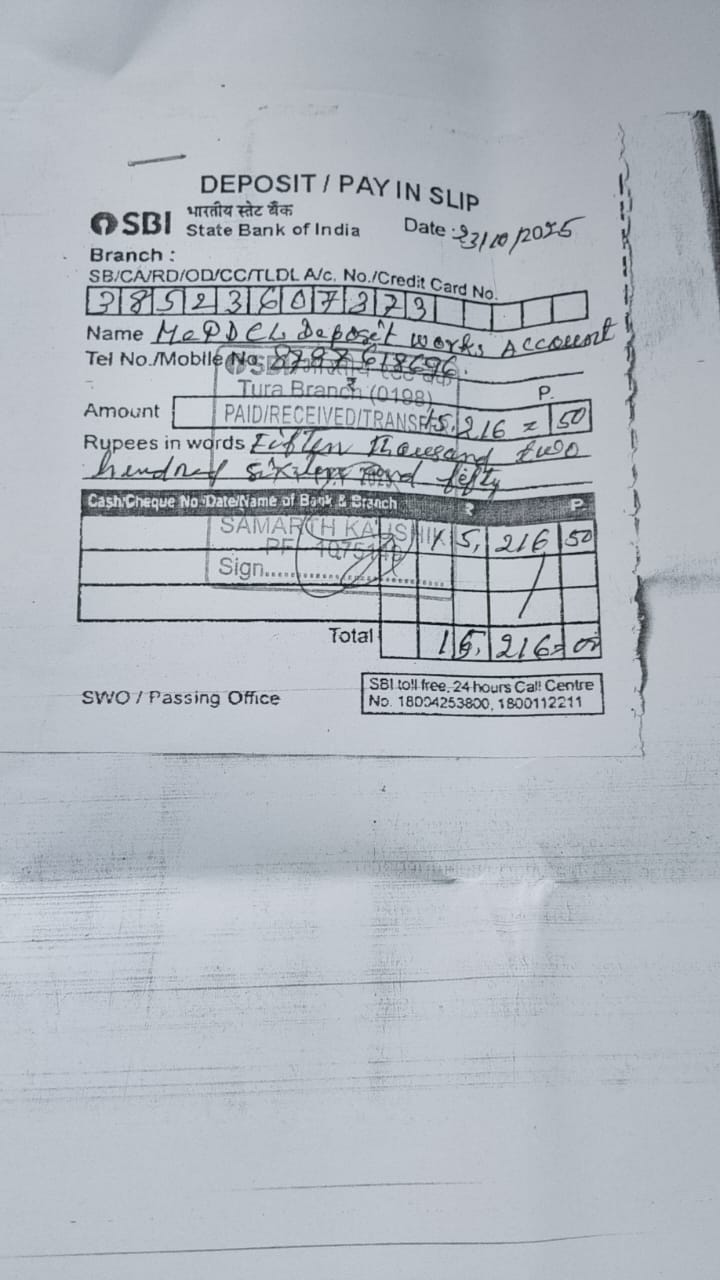 DEPOSIT / PAY IN SLIP
SBI भारतीय स्टेट बैंक
State Bank of India
Date : 23/10/2025
Branch :
SB/CA/RD/OD/CC/TLDL A/c. No./Credit Card No.
38523607323
Name MePDCL Deposit Works Account
Tel No./Mobile No. 8787618696.
SBI
Tura Branch (0198)
₹ P.
Amount 15,216 = 50
PAID/RECEIVED/TRANSF
Rupees in words Fiften Thousand two
hundred sixteen and fifty
Cash/Cheque No./Date/Name of Bank & Branch ₹ P
SAMARTH KAUSHIK 15,216 50
PF
Sign
Total 15,216=
SWO / Passing Office
SBI toll free, 24 hours Call Centre
No. 18004253800, 1800112211